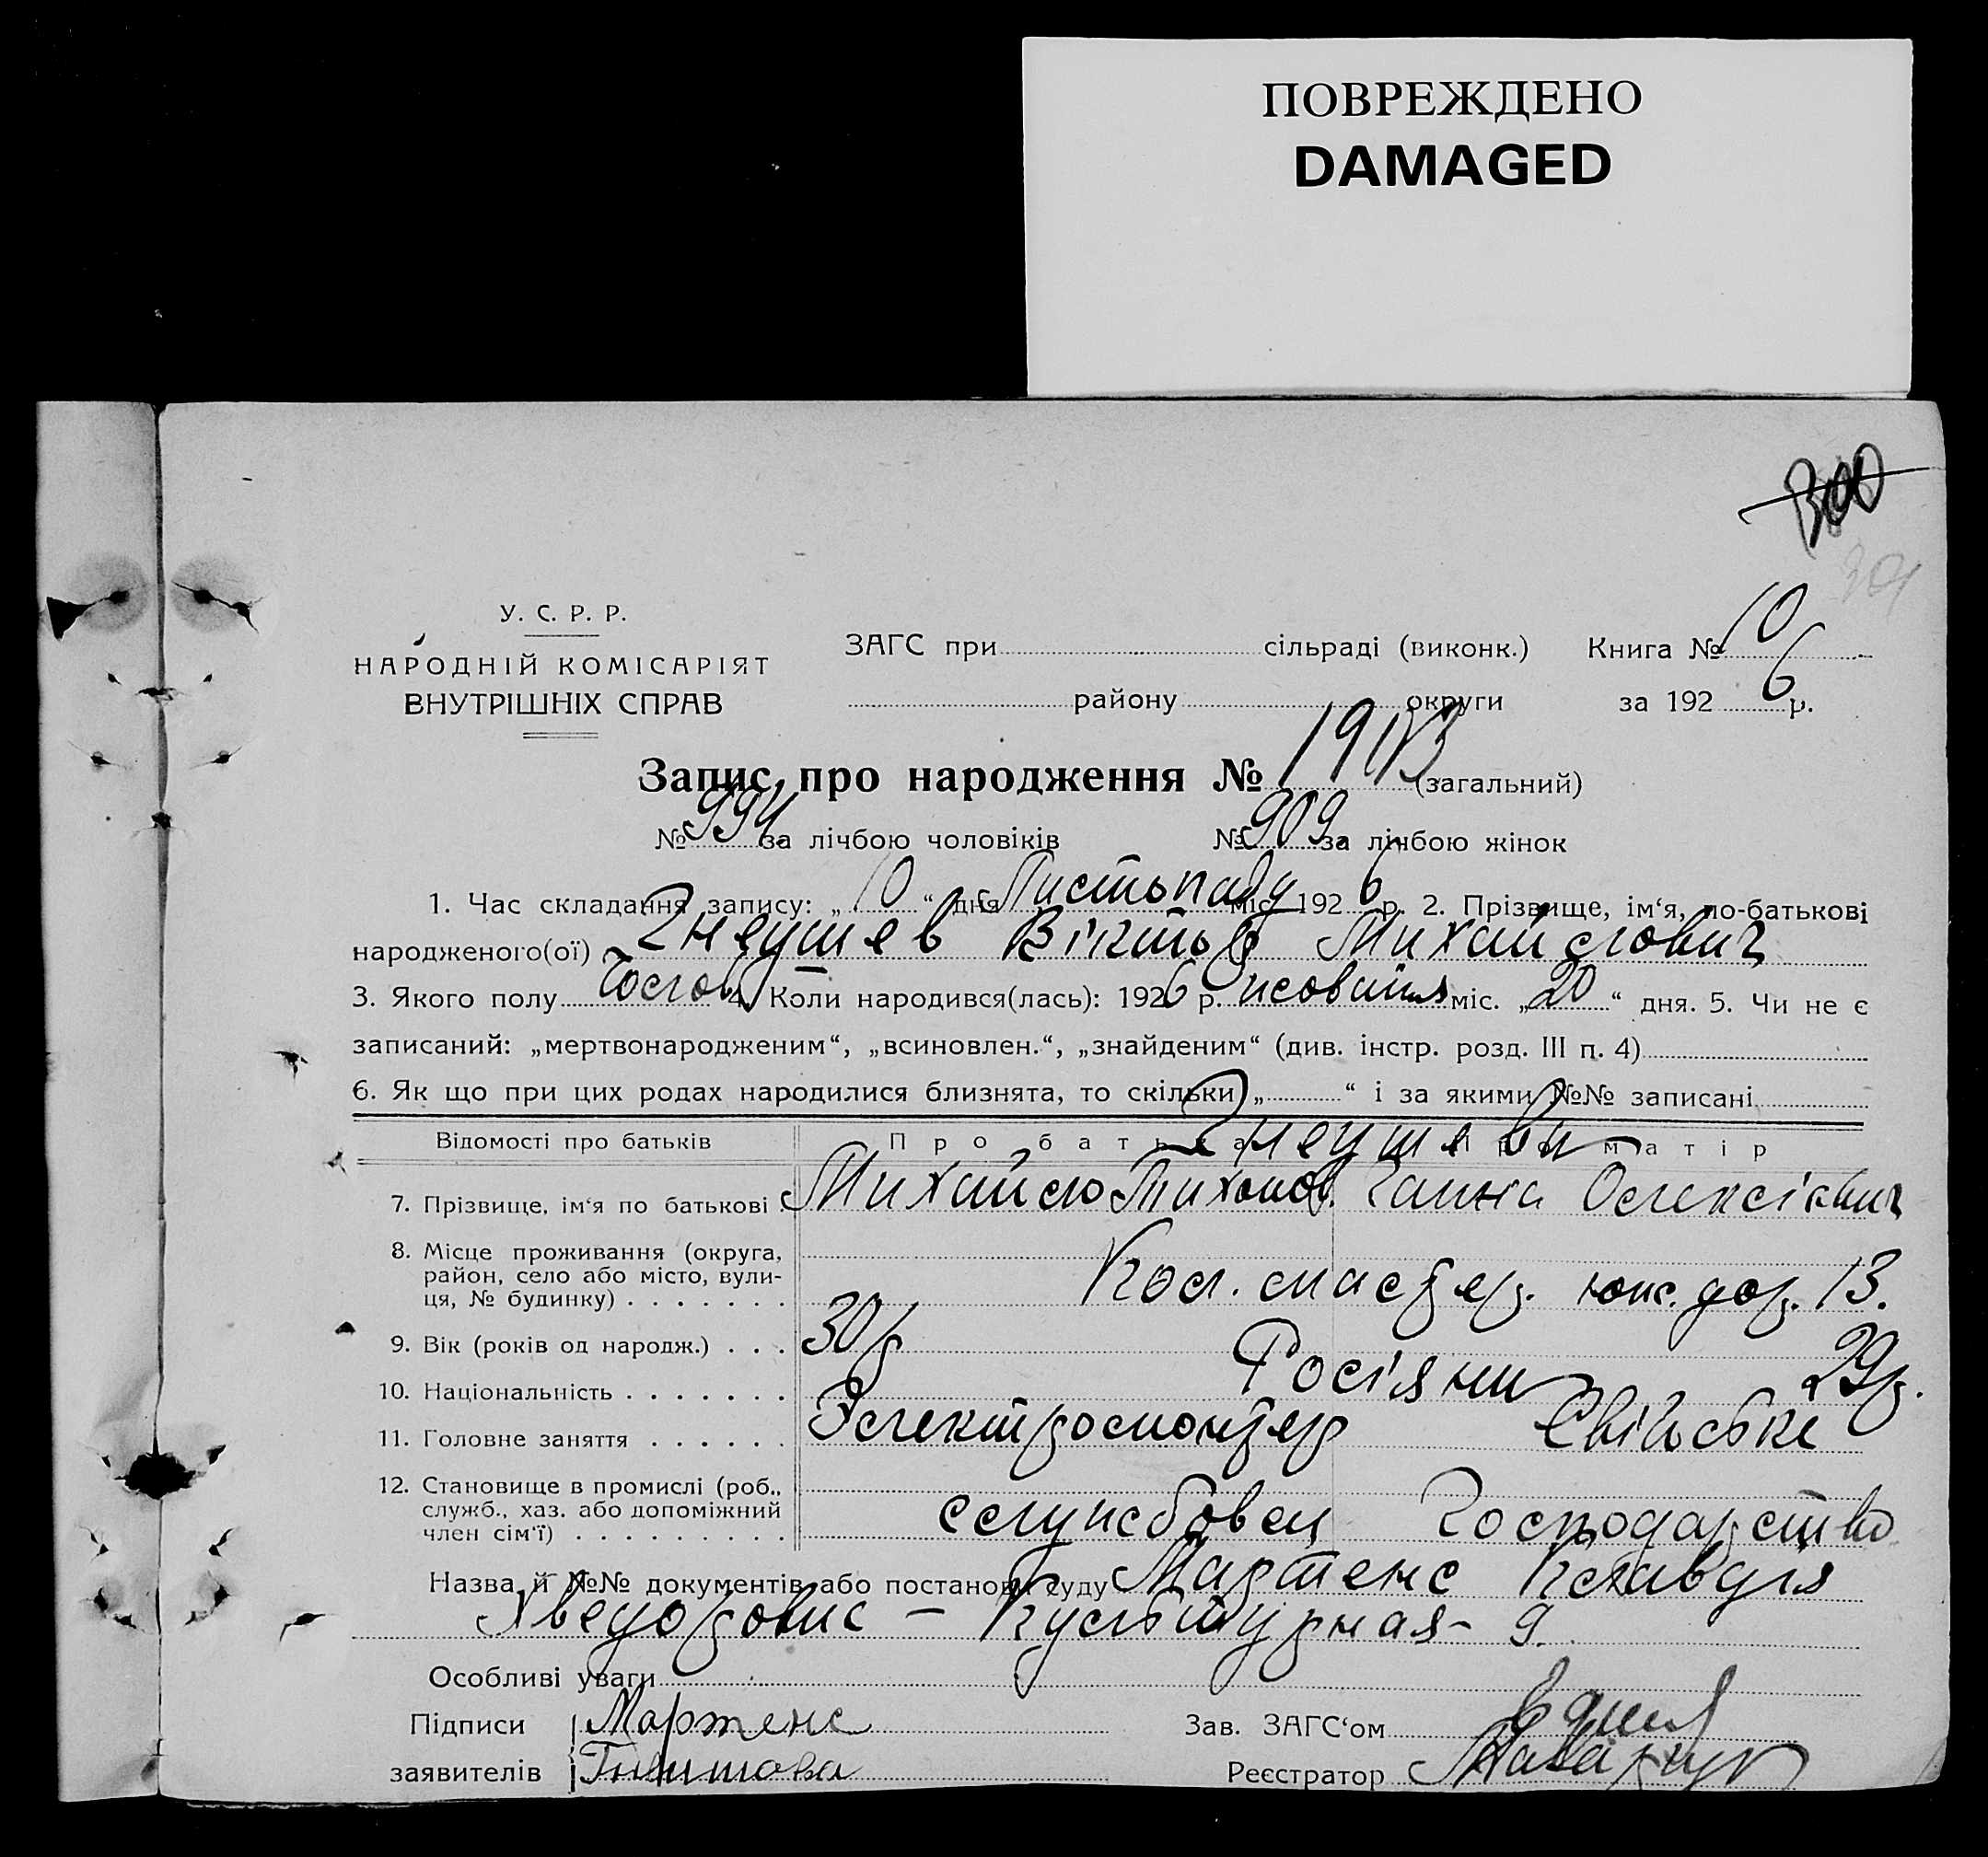 ПОВРЕЖДЕНО
DAMAGED
300
301
У. С. Р. Р.
НАРОДНІЙ КОМІСАРІЯТ
ВНУТРІШНІХ СПРАВ
ЗАГС при сільраді (виконк.) Книга № 10
району округи за 1926 р.
Запис про народження № 1903 (загальний)
№ 994 за лічбою чоловіків № 909 за лічбою жінок
1. Час складання запису: „10“ дня Листопаду міс. 1926 р. 2. Прізвище, ім‘я, по-батькові
народженого(ої) Гнеушев Віктор Михайлович
3. Якого полу Чолов 4. Коли народився(лась): 1926 р. жовтня міс. „20“ дня. 5. Чи не є
записаний: „мертвонародженим“, „всиновлен.“, „знайденим“ (див. інстр. розд. III п. 4)
6. Як що при цих родах народилися близнята, то скільки „ “ і за якими №№ записані
Відомості про батьків Про батька Про матір
Гнеушеви
7. Прізвище, ім‘я по батькові Михайло Тихонов. Ганна Олексієвна
8. Місце проживання (округа,
район, село або місто, вули-
ця, № будинку) Кол. мастер. южн. дор. 13.
9. Вік (років од народж.) 30 р 29 р.
10. Національність Росіяни
11. Головне заняття Електромонтер Свійське
12. Становище в промислі (роб.,
служб., хаз. або допоміжний
член сім‘ї) службовец Господарство
Назва й №№ документів або постанови суду Мартенс Клавдия
Хведоровис — Культурная - 9.
Особливі уваги
Підписи Мартенс Зав. ЗАГС‘ом
заявителів Реєстратор